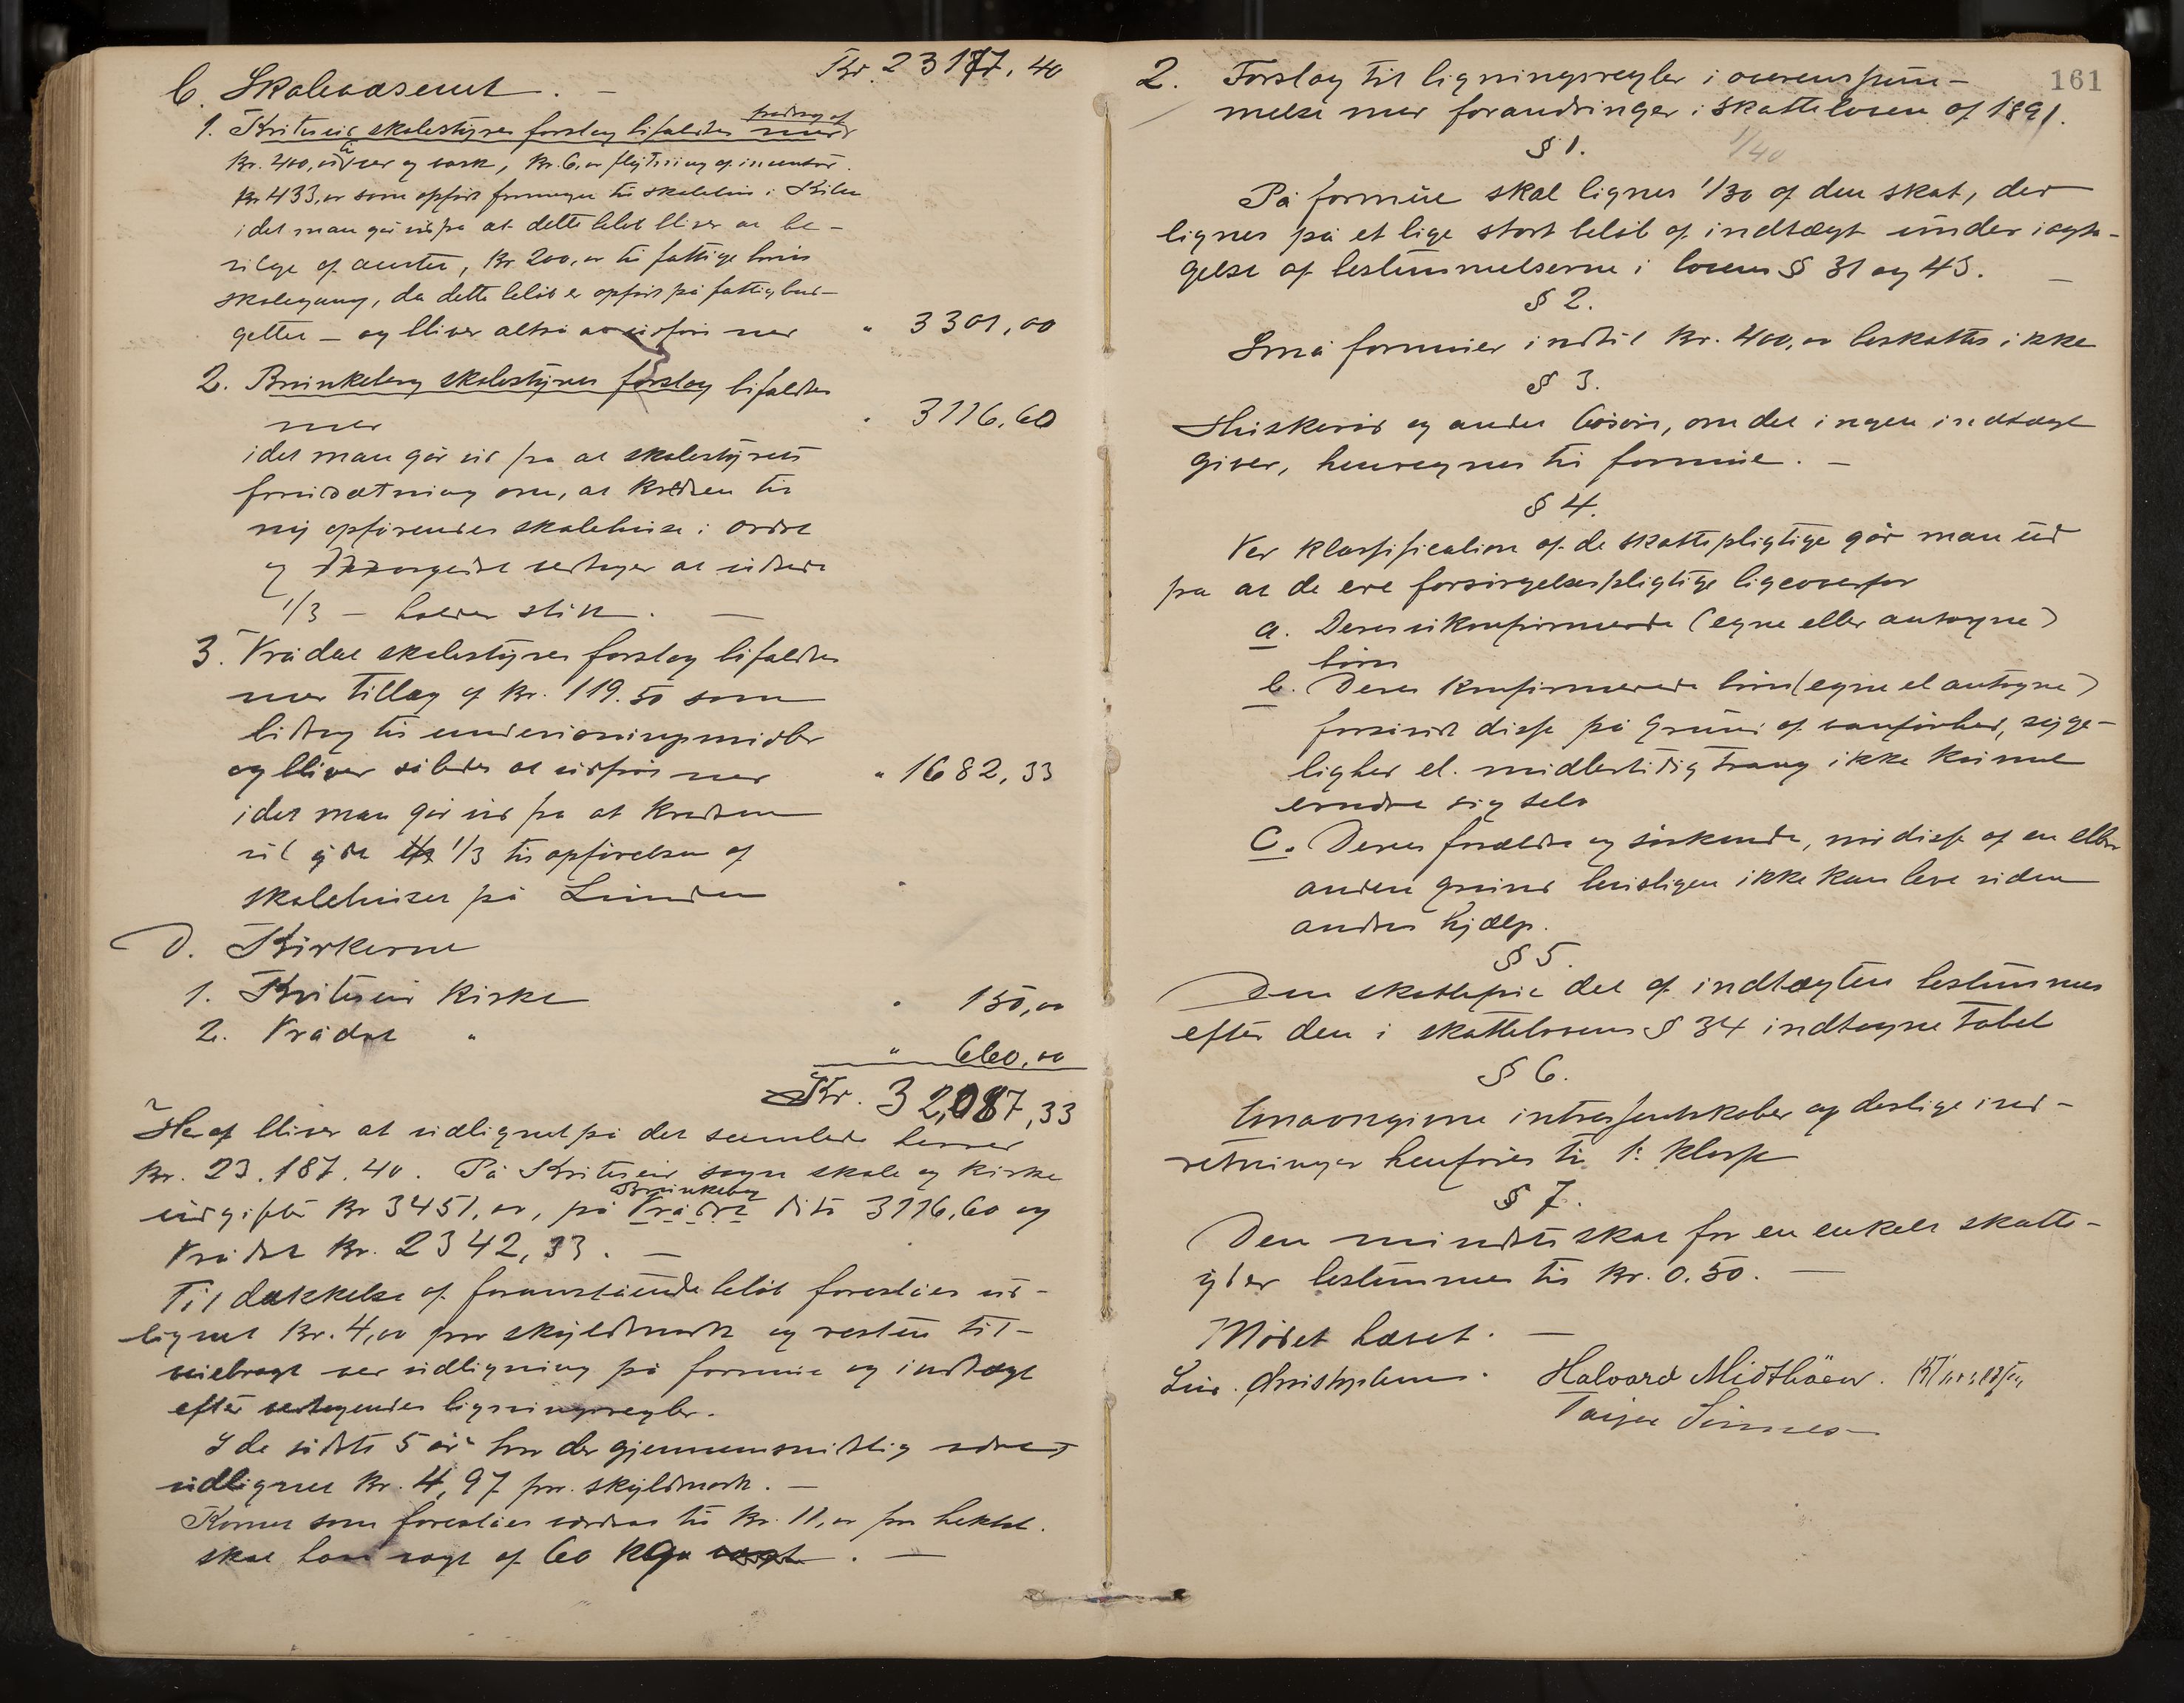 Kr. 23177,40
C. Skolevæsenet. –
1. Kviteseid skolestyres forslag bifaldes med fradrag af
Kr. 400,00 til ver og vask, Kr. 6,00 flytning af inventar
Kr 433,00 som opført formeget til skolehus i
idet man går ud fra at dette beløb bliver at be-
vilge af amtet, Kr 200,00 til fattige børns
skolegang, da dette beløb er opført på fattigbud-
gettet – og bliver altså at udføre med " 3301,00
2. Brunkeberg skolestyres forslag bifaldes
med " 3116,60
idet man går ud fra at skolestyrets
forudsætning om, at kredsen til
ny opførendes skolehuse i
og vedtager at udrede
1/3 – holder stik. –
3. Vrådal skolestyres forslag bifaldes
med tillæg af Kr. 119.50 som
bidrag til undervisningsmidler
og bliver således at udføre med " 1682,33
idet man går ud fra at kredsen
vil yde 1/3 til opførelsen af
skolehuset på Lunden
D. Kirkerne
1. Kviteseid Kirke " 150,00
2. Vrådal " " 660,00
Kr. 32,087,33
Heraf bliver at udlignet på det samlede herred
Kr. 23.187.40. På Kviteseid sogns skole og kirke
udgifter Kr 3451,00, på Brunkeberg Vrådal dito 3116,60 og
Vrådal Kr. 2342,33. –
Til dækkelse af foranstående beløb foreslåes ud-
lignet Kr. 4,00 pr skyldmark og resten til-
veiebragt ved udligning på formue og indtægt
efter vedtagendes ligningsregler.
I de sidste 5 år har der gjennemsnitlig været
udlignet Kr. 4,97 pr. skyldmark. –
Kornet som foreslåes vurderes til Kr. 11,00 pr hektol.
skal have vægt af 60 kg. –
161
2. Forslag til ligningsregler i overensstem-
melse med forandringer i skatteloven af 1891.
§ 1. 1/40
På formue skal lignes 1/30 af den skat, der
lignes på et lige stort beløb af indtægt under iagta-
gelse af bestemmelserne i lovens § 31 og 43. –
§ 2.
Små formuer indtil Kr. 400,00 beskattes ikke
§ 3.
Huskerid og andet løsøre, om det ingen indtægt
giver, henregnes til formue. –
§ 4.
Ved klassification af de skattepligtige går man ud
fra at de ere forsørgelsespligtige ligeoverfor
a. Deres ukonfirmerede (egne eller antagne)
børn
b. Deres konfirmerede børn (egne el antagne)
forsåvidt disse på grund af vanførhed, syge-
lighed el. midlertidig trang ikke kunne
ernære sig selv
C. Deres forældre og søskende, når disse af en eller
anden grund bevisligen ikke kan leve uden
andres hjælp.
§ 5.
Den skattefrie del af indtægten bestemmes
efter den i skattelovens § 34 indtagne Tabel
§ 6.
Unavngivne interessentskaber og deslige ind-
retninger henføres til 1e klasse
§ 7.
Den mindste skat for en enkelt skatte-
yder bestemmes til Kr. 0.50. –
Mødet hævet. –
Halvard Midthäen.